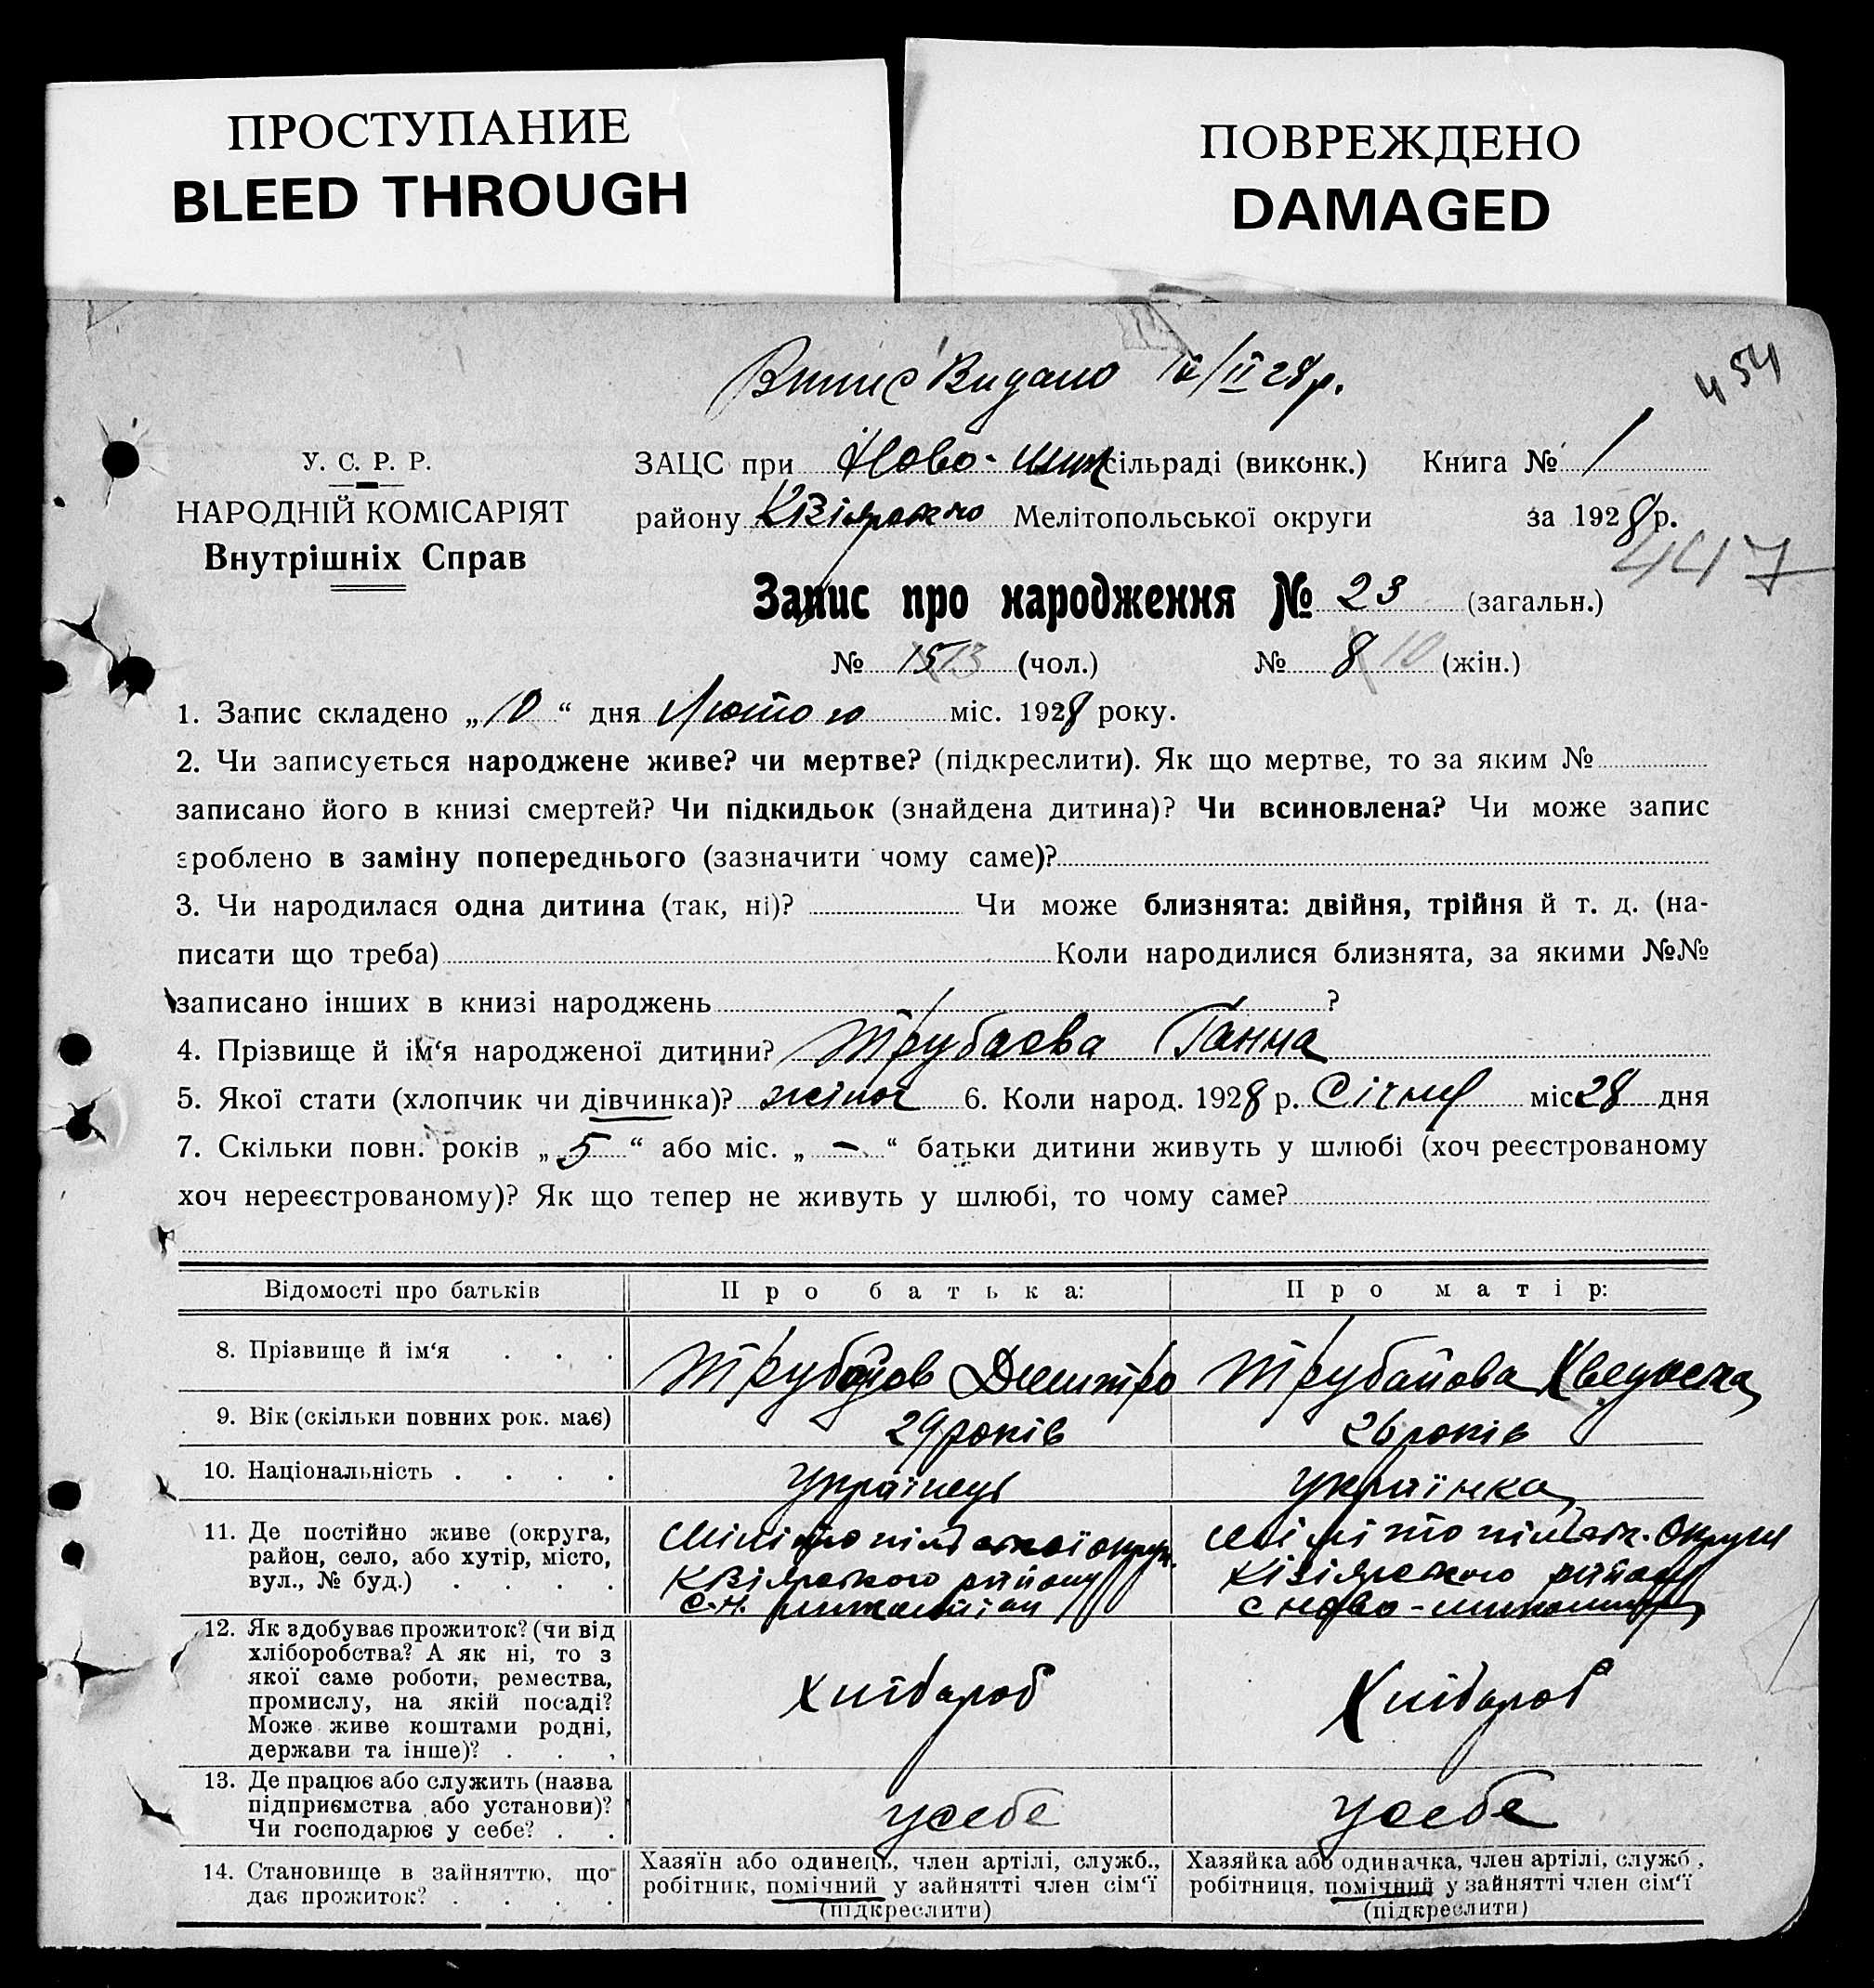 ПРОСТУПАНИЕ
BLEED THROUGH
ПОВРЕЖДЕНО
DAMAGED
Видано /II 28р.
454
У. С. Р. Р.
НАРОДНІЙ КОМІСАРІЯТ
Внутрішніх Справ
ЗАЦС при Ново- сільраді (виконк.) Книга № 1
району Мелітопольської округи за 1928 р.
447
Запис про народження № 23 (загальн.)
№ 15 13 (чол.) № 8 10 (жін.)
1. Запис складено „10“ дня Лютого міс. 1928 року.
2. Чи записується народжене живе? чи мертве? (підкреслити). Як що мертве, то за яким №
записано його в книзі смертей? Чи підкидьок (знайдена дитина)? Чи всиновлена? Чи може запис
зроблено в заміну попереднього (зазначити чому саме)?
3. Чи народилася одна дитина (так, ні)? Чи може близнята: двійня, трійня й т. д. (на-
писати що треба) Коли народилися близнята, за якими №№
записано інших в книзі народжень ?
4. Прізвище й ім‘я народженої дитини? Трубаєва Ганна
5. Якої стати (хлопчик чи дівчинка)? жіноч 6. Коли народ. 1928 р. Січня міс 28 дня
7. Скільки повн. років „5“ або міс. „–“ батьки дитини живуть у шлюбі (хоч реєстрованому
хоч нереєстрованому)? Як що тепер не живуть у шлюбі, то чому саме?
Відомості про батьків Про батька: Про матір:
8. Прізвище й ім‘я . . . Дмитро
9. Вік (скільки повних рок. має) 29 років 26 років
10. Національність . . . . українець українка
11. Де постійно живе (округа,
район, село, або хутір, місто,
вул., № буд.) . . . .
району
12. Як здобуває прожиток? (чи від
хліборобства? А як ні, то з
якої саме роботи, ремества,
промислу, на якій посаді?
Може живе коштами родні,
держави та інше)? . . .
Хлібороб Хлібороб
13. Де працює або служить (назва
підприємства або установи)?
Чи господарює у себе? . .
у себе у себе
14. Становище в зайняттю, що
дає прожиток? . . . .
Хазяїн або одинець, член артілі, служб.,
робітник, помічний у зайнятті член сім‘ї
(підкреслити)
Хазяйка або одиначка, член артілі, служб.,
робітниця, помічний у зайнятті член сім‘ї
(підкреслити)